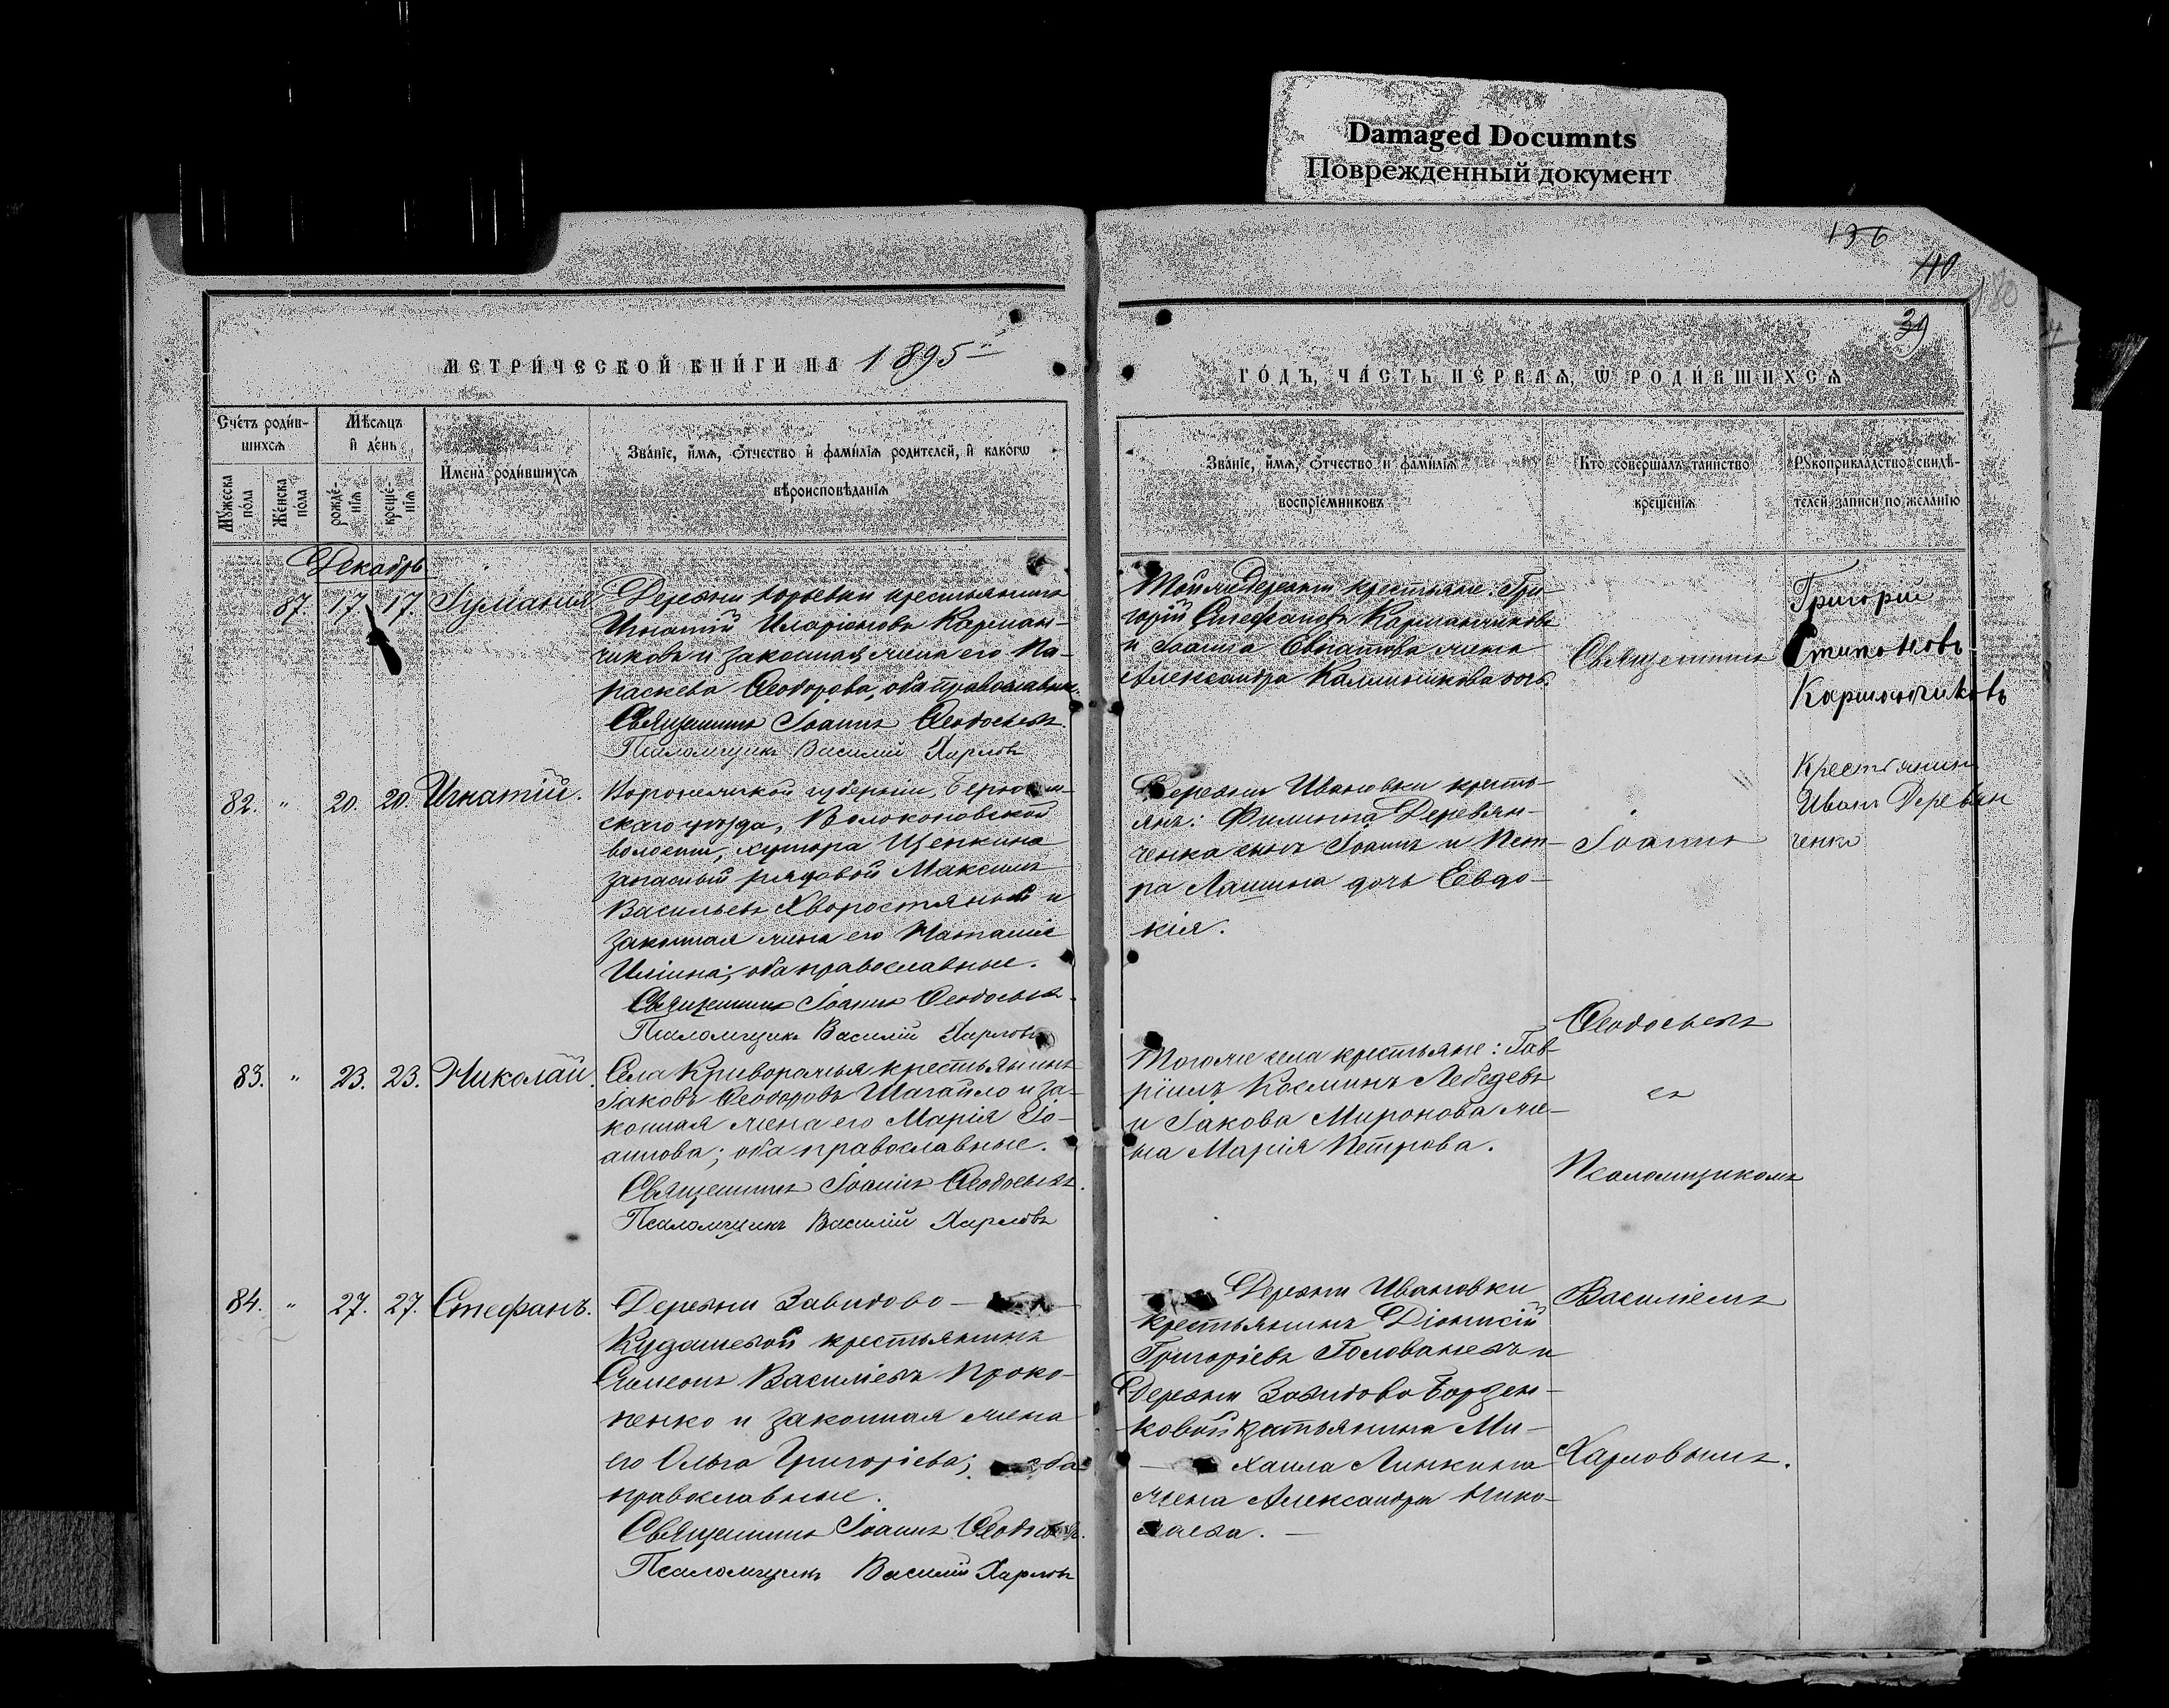 Damaged Documnts
Поврежденный документ
136
40
180
39
МЕТРИ́ЧЕСКОЙ КНИ́ГИ НА 1895й
ГО́ДЪ, ЧА́СТЬ ПЕ́РВАѦ, Ѡ РОДИ́ВШИХСѦ
Сче́тъ роди́в-
шихсѧ
Мꙋжеска по́ла
Же́нска по́ла
Мѣ́сѧцъ
и҆ де́нь
рожде́-
нїѧ
креще́-
нїѧ
И҆мена̀ роди́вшихсѧ
Зва́нїе, и҆́мѧ, ѻ҆́тчество и҆ фами́лїѧ родителей, и҆ како́гѡ
вѣроисповѣ́данїѧ
Зва́нїе, и҆́мѧ, ѻ҆́тчество и҆ фами́лїѧ
воспрїе́мниковъ
Кто̀ соверша́лъ та́инство
креще́нїѧ
Рꙋкоприкла́дство свидѣ́-
телей за́писи по жела́нїю
Декабрь
87. 17. 17. Іуліанія
Деревни Юрьевки крестьянинъ
Игнатій Иларіоновъ Карман-
чиковъ и законная жена его Па-
раскева Ѳеодорова, оба православные.
Священникъ Іоаннъ Ѳеодосьевъ.
Псаломщикъ Василій Харловъ
Той же деревни крестьяне: Гри-
горій Стефановъ Карманчиковъ
и Іоанна жена
Александра Калинникова дочь.
Григорій
Степановъ
Карманчиковъ
82. " 20. 20. Игнатій.
Воронежской губерніи, Бирючен-
скаго уѣзда, Волоконовской
волости, хутора Щепкина
запасный рядовой Максимъ
Васильевъ Хворостяной и
законная жена его Наталія
Иліина; оба православные.
Священникъ Іоаннъ Ѳеодосьевъ.
Псаломщикъ Василій Харловъ
Деревни Ивановки кресть-
янъ: Филиппа Деревян-
ченка сынъ Іоаннъ и Пет-
ра Лашина дочь Евдо-
кія.
Крестьянин
Иванъ Деревян
ченко
83. " 23. 23. Николай.
Села Криворожья крестьянинъ
Іаковъ Ѳеодоровъ Шагайло и за-
конная жена его Марія Іо-
аннова; оба православные.
Священникъ Іоаннъ Ѳеодосьевъ.
Псаломщикъ Василій Харловъ
Того же села крестьяне: Гав-
ріилъ Косминъ Лебедевъ
и Іакова Миронова же-
на Марія Петрова.
84. " 27. 27. Стефанъ.
Деревни Завидово-
Кудашевой крестьянинъ
Симеонъ Василіевъ Проко-
пенко и законная жена
его Ольга Григоріева; оба
православные.
Священникъ Іоаннъ Ѳеодосьевъ.
Псаломщикъ Василій Харловъ
Деревни Ивановки
крестьянинъ Діонисій
Григоріевъ Голованевъ и
деревни Завидово Борзен-
ковой крестьянина Ми-
хаила Линкина
жена Александра Нико-
лаева.
Священникъ
Іоаннъ
Ѳеодосьевъ
съ
Псаломщикомъ
Василіемъ
Харловымъ.